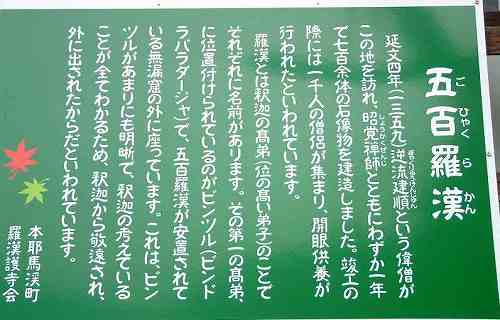 五百羅漢
ごひゃくらかん
延文四年(一三五九)逆流建順という偉僧が
ぎゃくりゅうけんじゅん
この地を訪れ、昭覚禅師とともにわずか一年
しょうかくぜんじ
で七百余体の石像物を建造しました。竣工の
際には一千人の僧侶が集まり、開眼供養が
行われたといわれています。
羅漢とは釈迦の高弟(位の高い弟子)のことで
それぞれに名前があります。その第一の高弟、
に位置付けられているのがビンツル(ビンド
ラバラダージャ)で、五百羅漢が安置されて
いる無漏窟の外に座っています。これは、ビン
ツルがあまりにも明晰で、釈迦の考えている
ことが全てわかるため、釈迦から敬遠され、
外に出されたからだといわれています。
本耶馬渓町
羅漢護寺会